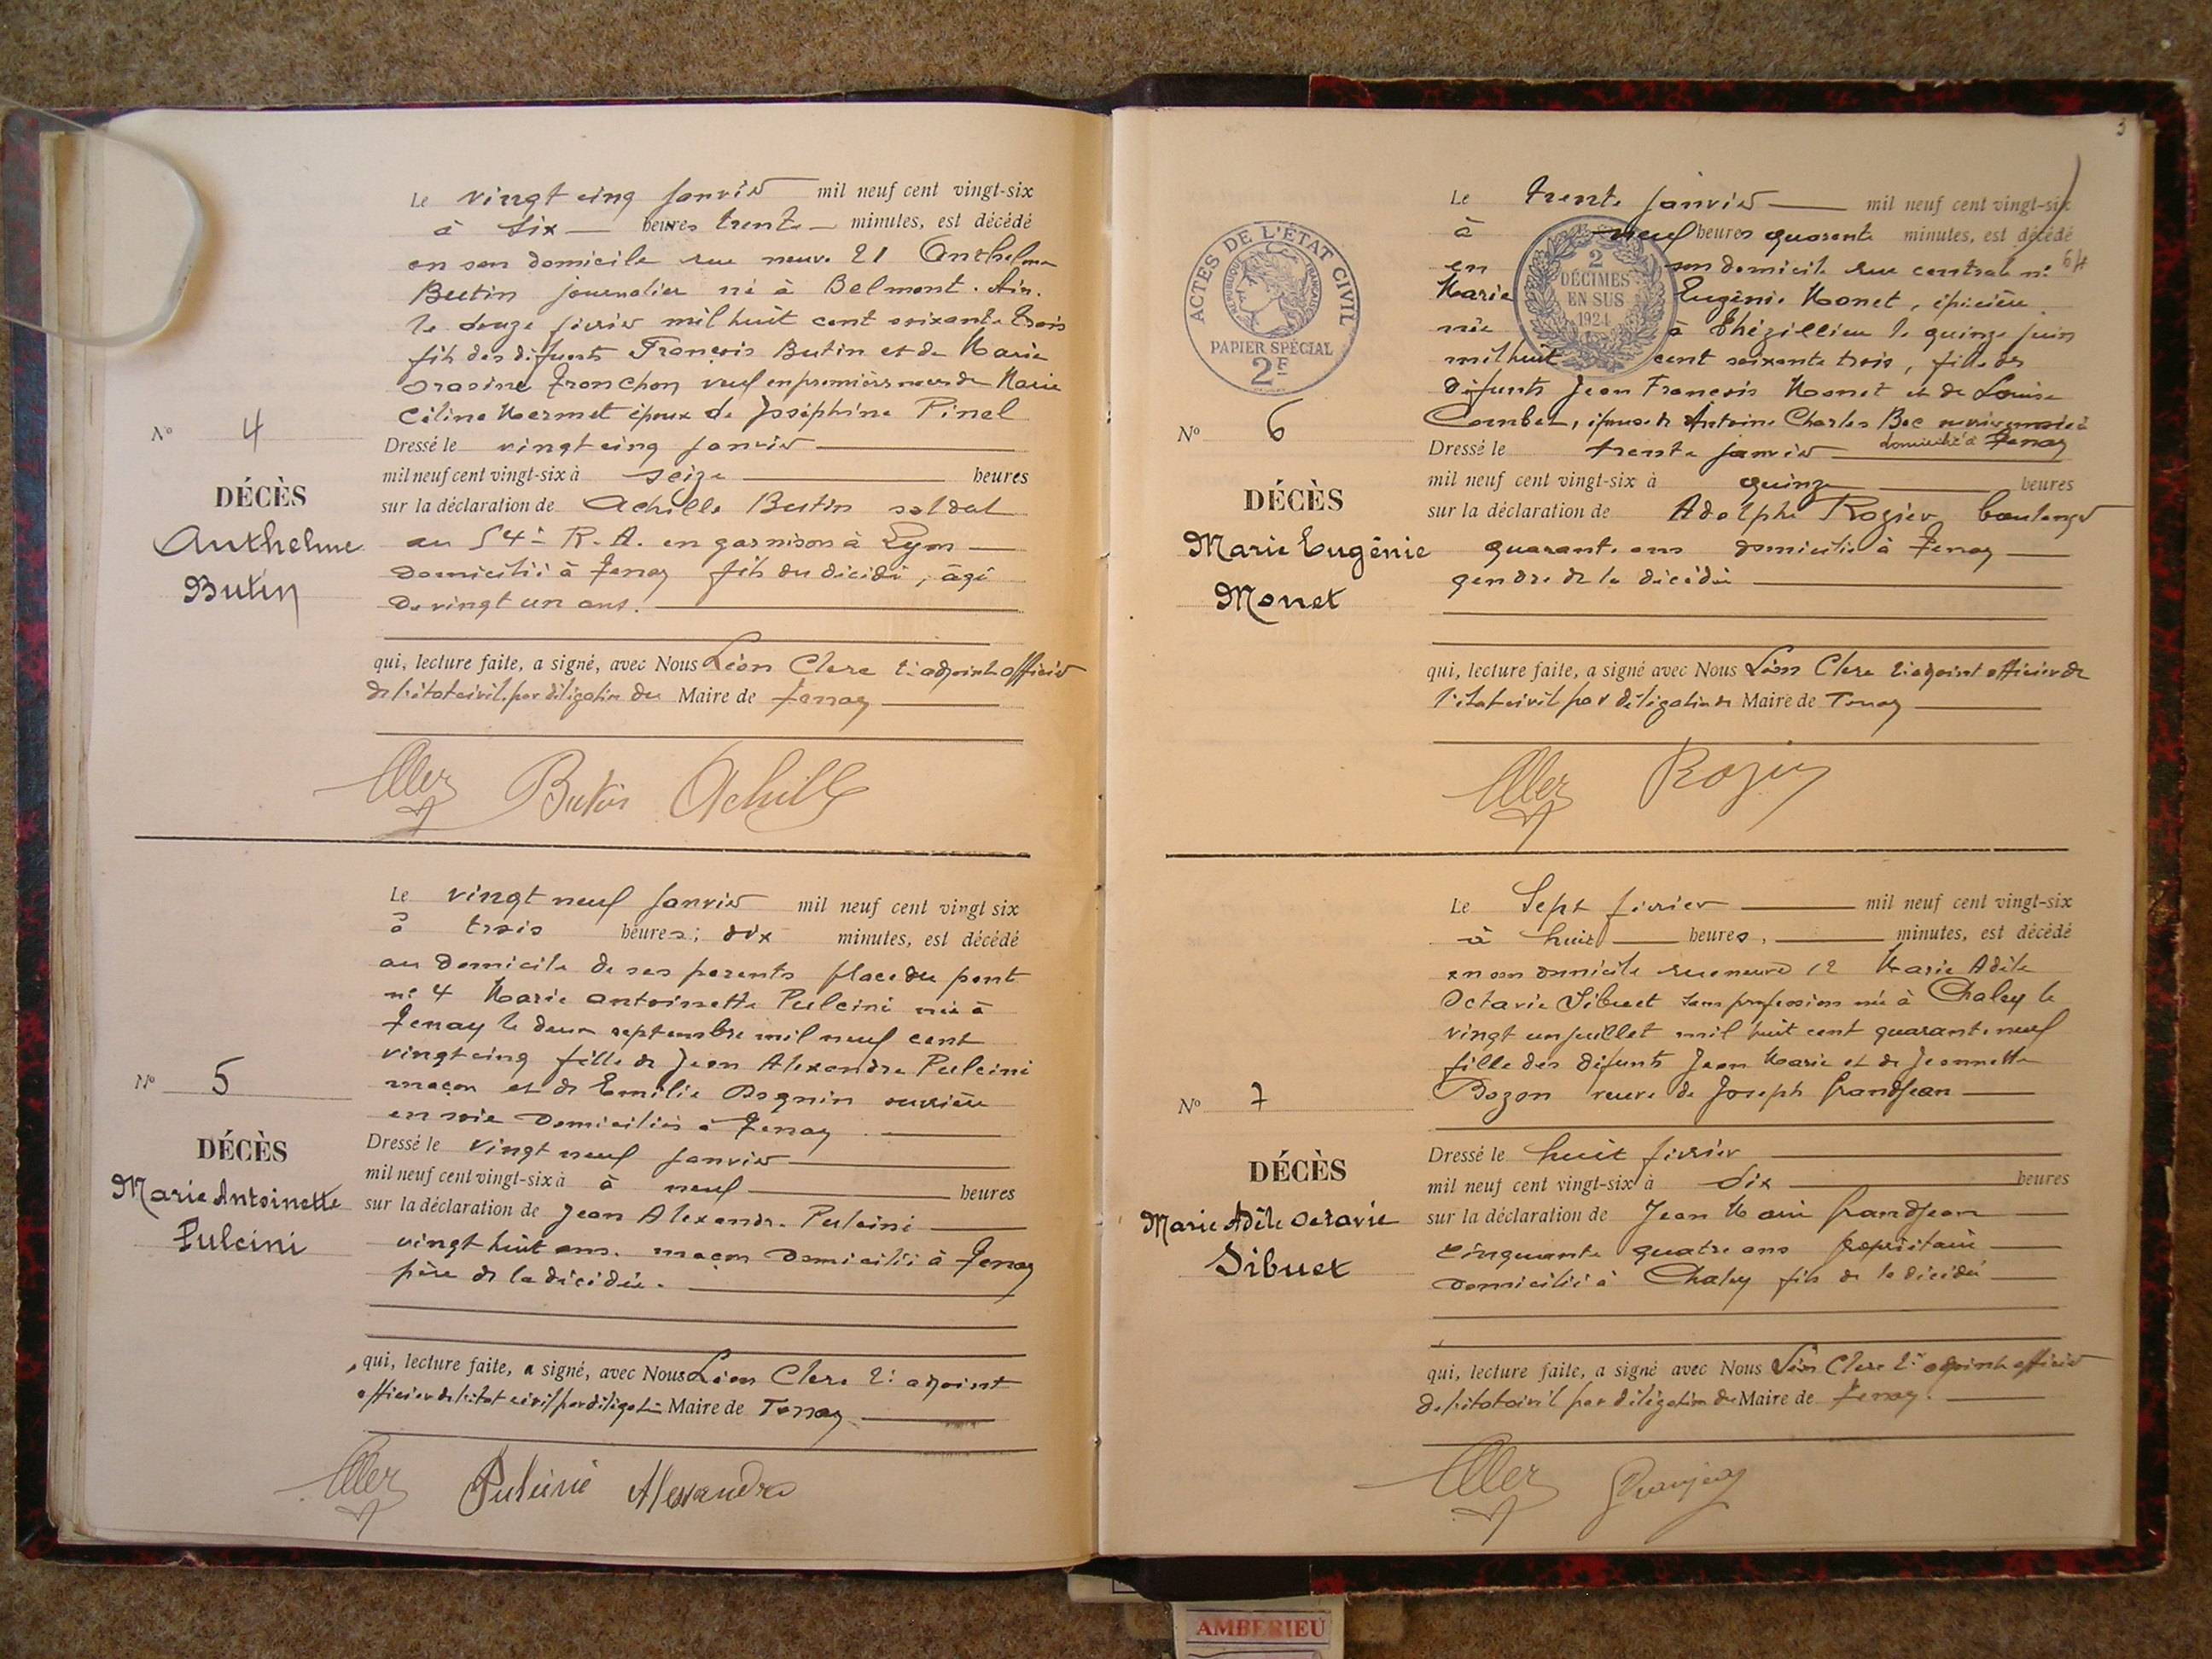 Le vingt cinq janvier mil neuf cent vingt-six
à six heures trente minutes, est décédé
en son domicile rue neuve 21 Anthelme
Butin journalier né à Belmont. Ain.
le douze février mil huit cent soixante trois
fils des défunts François Butin et de Marie
Tronchon veuf en premières noces de Marie
Céline Mermet époux de Joséphine Pinel
Nº 4
Dressé le vingt cinq janvier
mil neuf cent vingt-six à seize heures
DÉCÈS
Anthelme
Butin
sur la déclaration de Achille Butin soldat
au 54è R. A. en garnison à Lyon
domicilié à Tenay fils du décédé, âgé
de vingt un ans.
qui, lecture faite, a signé, avec Nous Léon Clerc 2è adjoint officier
de l'état civil par délégation du Maire de Tenay
Butin Achille
Le vingt neuf janvier mil neuf cent vingt six
à trois heures, dix minutes, est décédé
au domicile de ses parents place du pont
nº 4 Marie Antoinette Pulcini née à
Tenay le deux septembre mil neuf cent
vingt cinq fille de Jean Alexandre Pulcini
maçon et de Emilie Dognin ouvrière
en soie domiciliés à Tenay
Nº 5
DÉCÈS
Marie Antoinette
Pulcini
Dressé le vingt neuf janvier
mil neuf cent vingt-six à à neuf heures
sur la déclaration de Jean Alexandre Pulcini
vingt huit ans. maçon domicilié à Tenay
père de la décédée.
qui, lecture faite, a signé, avec Nous Léon Clerc 2è adjoint
officier de l'état civil par délégation Maire de Tenay
Pulcini Alexandre
3
ACTES DE L'ÉTAT CIVIL
RÉPUBLIQUE FRANÇAISE
PAPIER SPÉCIAL
2F
2
DÉCIMES
EN SUS
1924
Le trente janvier mil neuf cent vingt-six
à neuf heures quarante minutes, est décédé
en son domicile rue centrale nº 64
Marie Eugénie Monet, épicière
née à Thézillieu le quinze juin
mil huit cent soixante trois, fille des
défunts Jean François Monet et de Louise
Combet, épouse de Antoine Charles Bec
domicilié à Tenay
Nº 6
DÉCÈS
Marie Eugénie
Monet
Dressé le trente janvier
mil neuf cent vingt-six à quinze heures
sur la déclaration de Adolphe Rozier boulanger
quarante ans domicilié à Tenay
gendre de la décédée
qui, lecture faite, a signé avec Nous Léon Clerc 2è adjoint officier de
l'état civil par délégation du Maire de Tenay
Rozier
Le Sept février mil neuf cent vingt-six
à huit heures, minutes, est décédé
en son domicile rue neuve 12 Marie Adèle
Octavie Sibuet sans profession née à Chaley le
vingt un juillet mil huit cent quarante neuf
fille des défunts Jean Marie et de Jeannette
Bozon veuve de Joseph Grandjean
Nº 7
DÉCÈS
Marie Adèle Octavie
Sibuet
Dressé le huit février
mil neuf cent vingt-six à dix heures
sur la déclaration de Jean Marie Grandjean
cinquante quatre ans propriétaire
domicilié à Chaley fils de la décédée
qui, lecture faite, a signé avec Nous Léon Clerc 2è adjoint officier
de l'état civil par délégation du Maire de Tenay.
Granjean
AMBERIEU